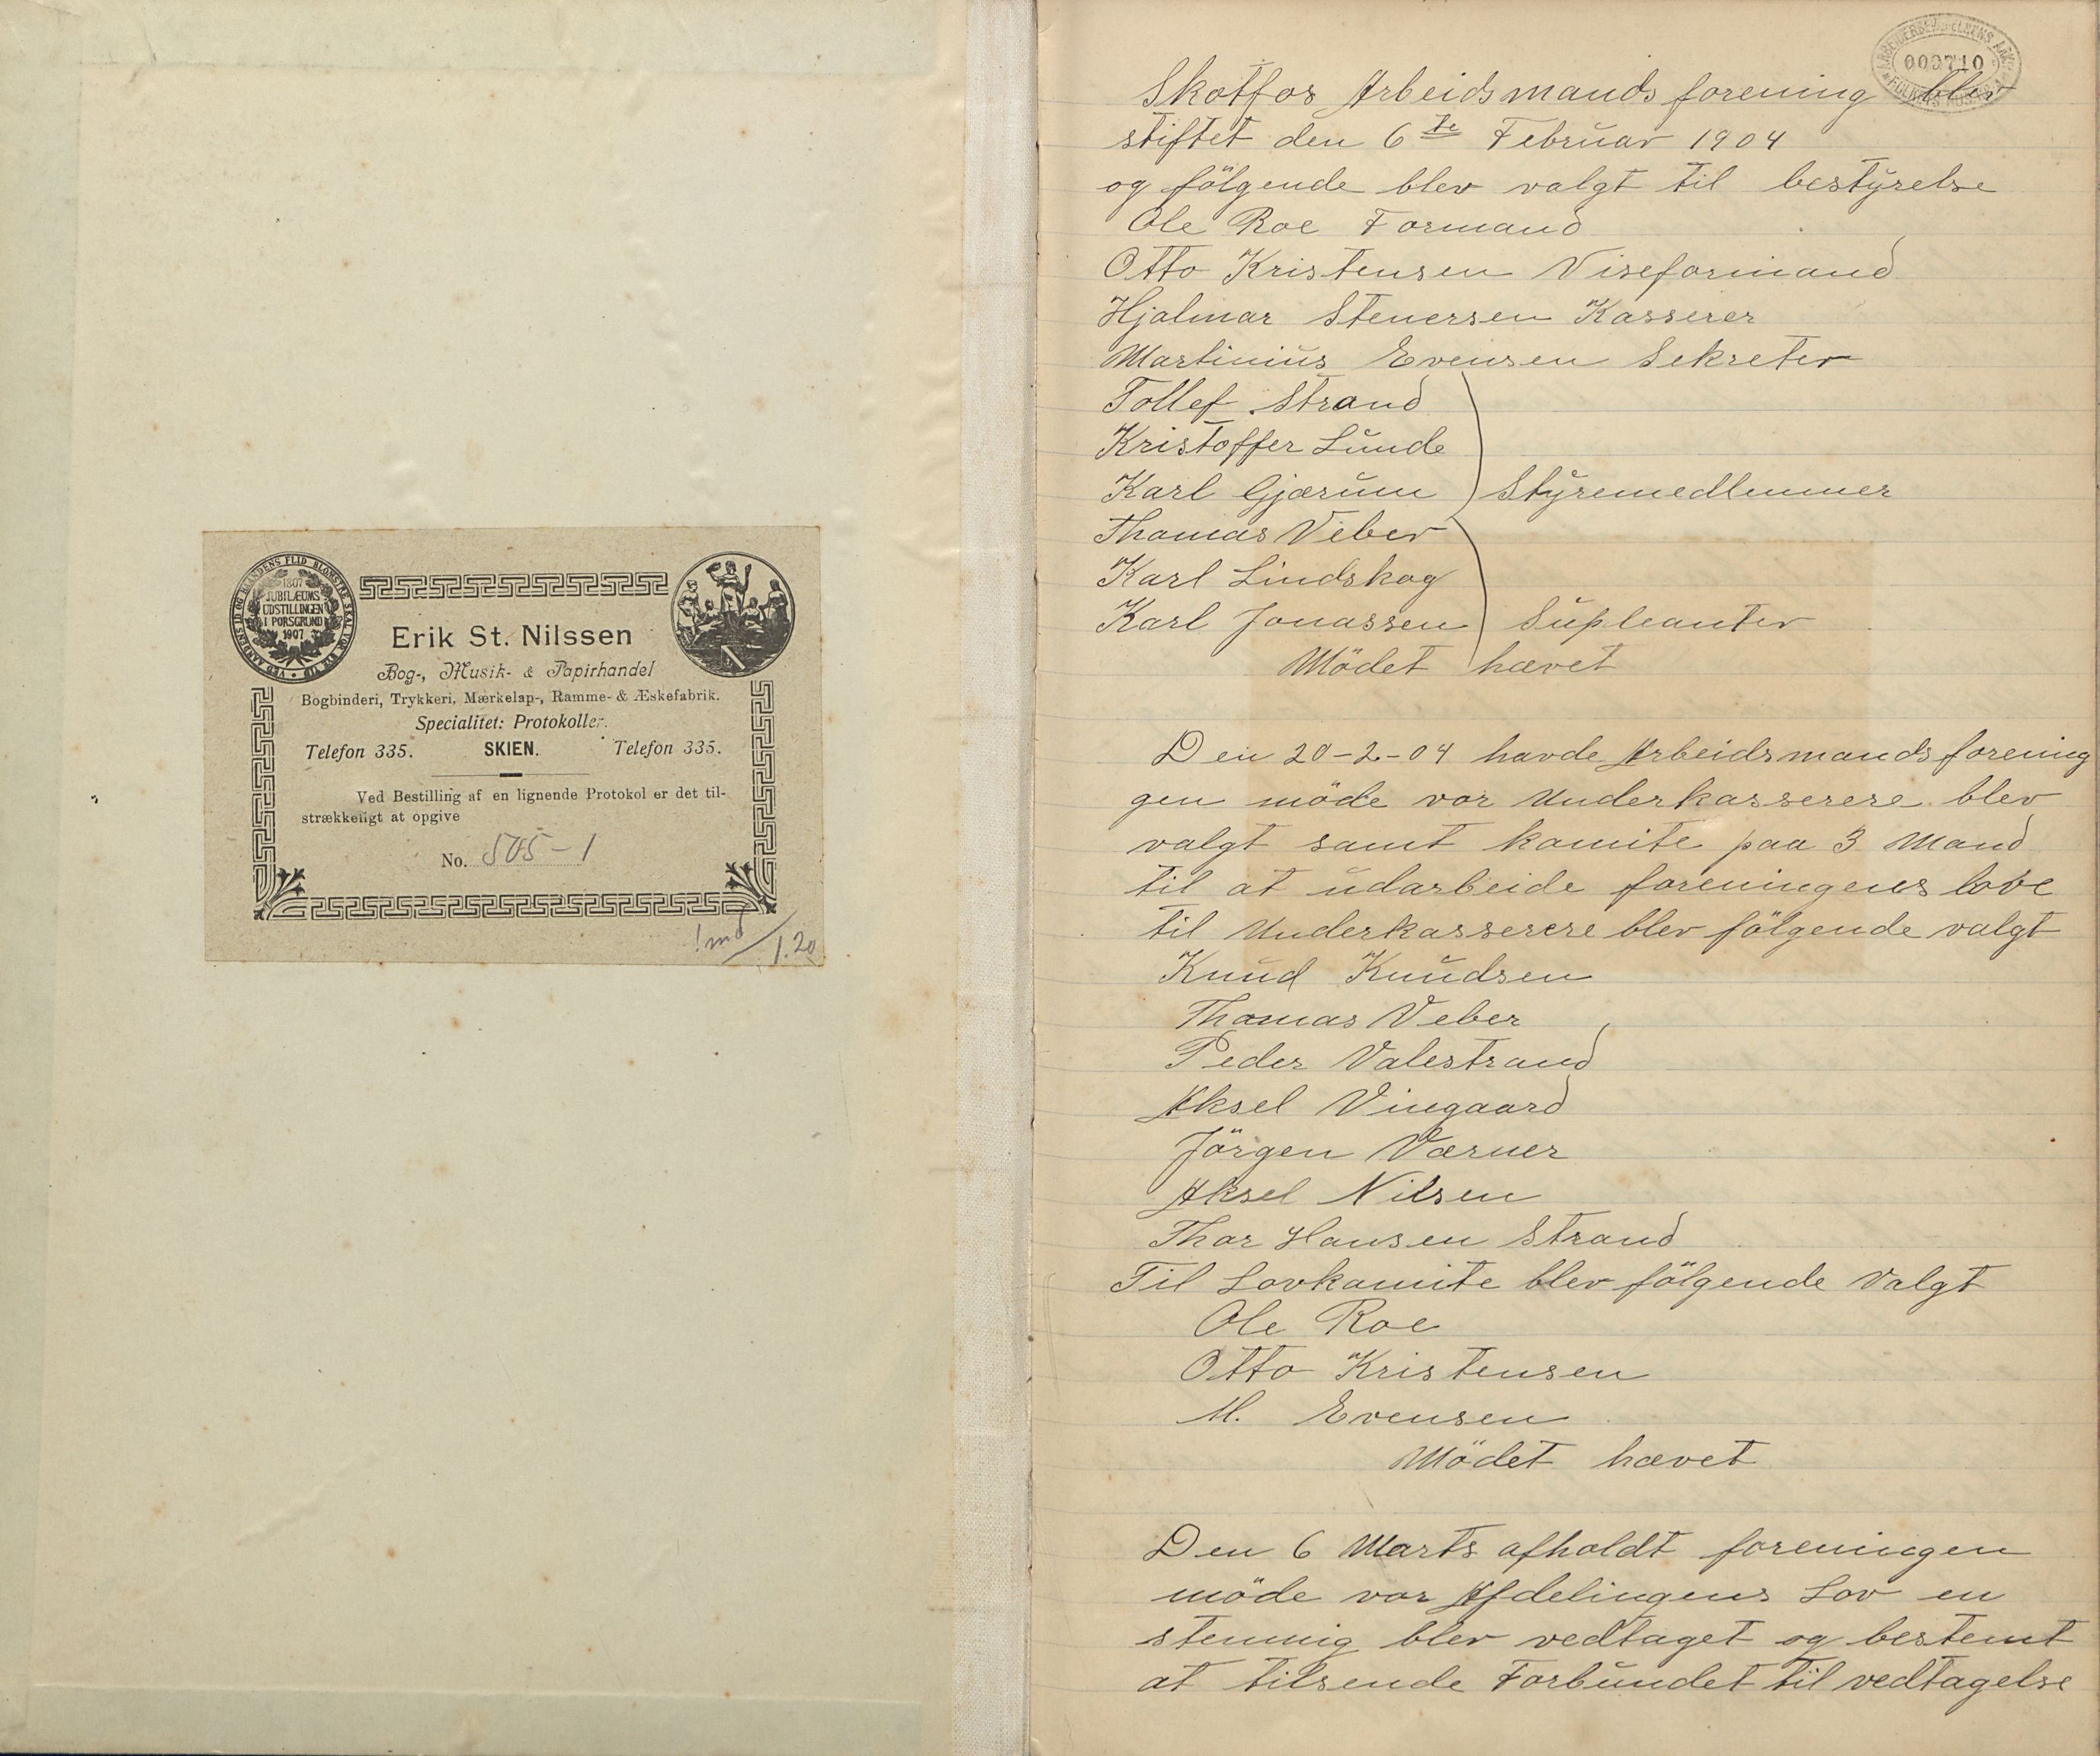 VED AANDENS ID OG HAANDENS FLID BLOMSTRE SKAL VOR BYE TID
1807
JUBILÆUMS
UDSTILLINGEN
I PORSGRUND
1907
Erik St. Nilssen
Bog-, Musik- & Papirhandel
Bogbinderi, Trykkeri, Mærkelap-, Ramme- & Æskefabrik.
Specialitet: Protokoller.
Telefon 335. SKIEN. Telefon 335.
Ved Bestilling af en lignende Protokol er det til-
strækkeligt at opgive
No. 505-1
1.20
ARBEIDERBEVEGELSENS ARKIV
003710
Skotfos Arbeidsmands forening blev
stiftet den 6te Februar 1904
og fölgende blev valgt til bestyrelse
Ole Roe Formand
Otto Kristensen Viseformand
Hjalmar Stenersen Kasserer
Martinius Evensen Sekreter
Tollef Strand
Kristoffer Lunde
Karl Gjærum Styremedlemmer
Thomas Veber
Karl Lindskog
Karl Jonassen Supleanter
Mödet hævet
Den 20-2-04 havde Arbeidsmandsforening
gen möde vor Underkasserere blev
valgt samt komite paa 3 Mand
til at udarbeide foreningens love
til Underkasserere blev fölgende valgt
Knud Knudsen
Thomas Veber
Peder Valestrand
Aksel Vingaard
Jörgen Værner
Aksel Nilsen
Thor Hansen Strand
Til Lovkomite blev fölgende valgt
Ole Roe
Otto Kristensen
M. Evensen
Mödet hævet
Den 6 Marts afholdt foreningen
möde vor Afdelingens Lov en
stemmig blev vedtaget og bestemt
at tilsende Forbundet til vedtagelse